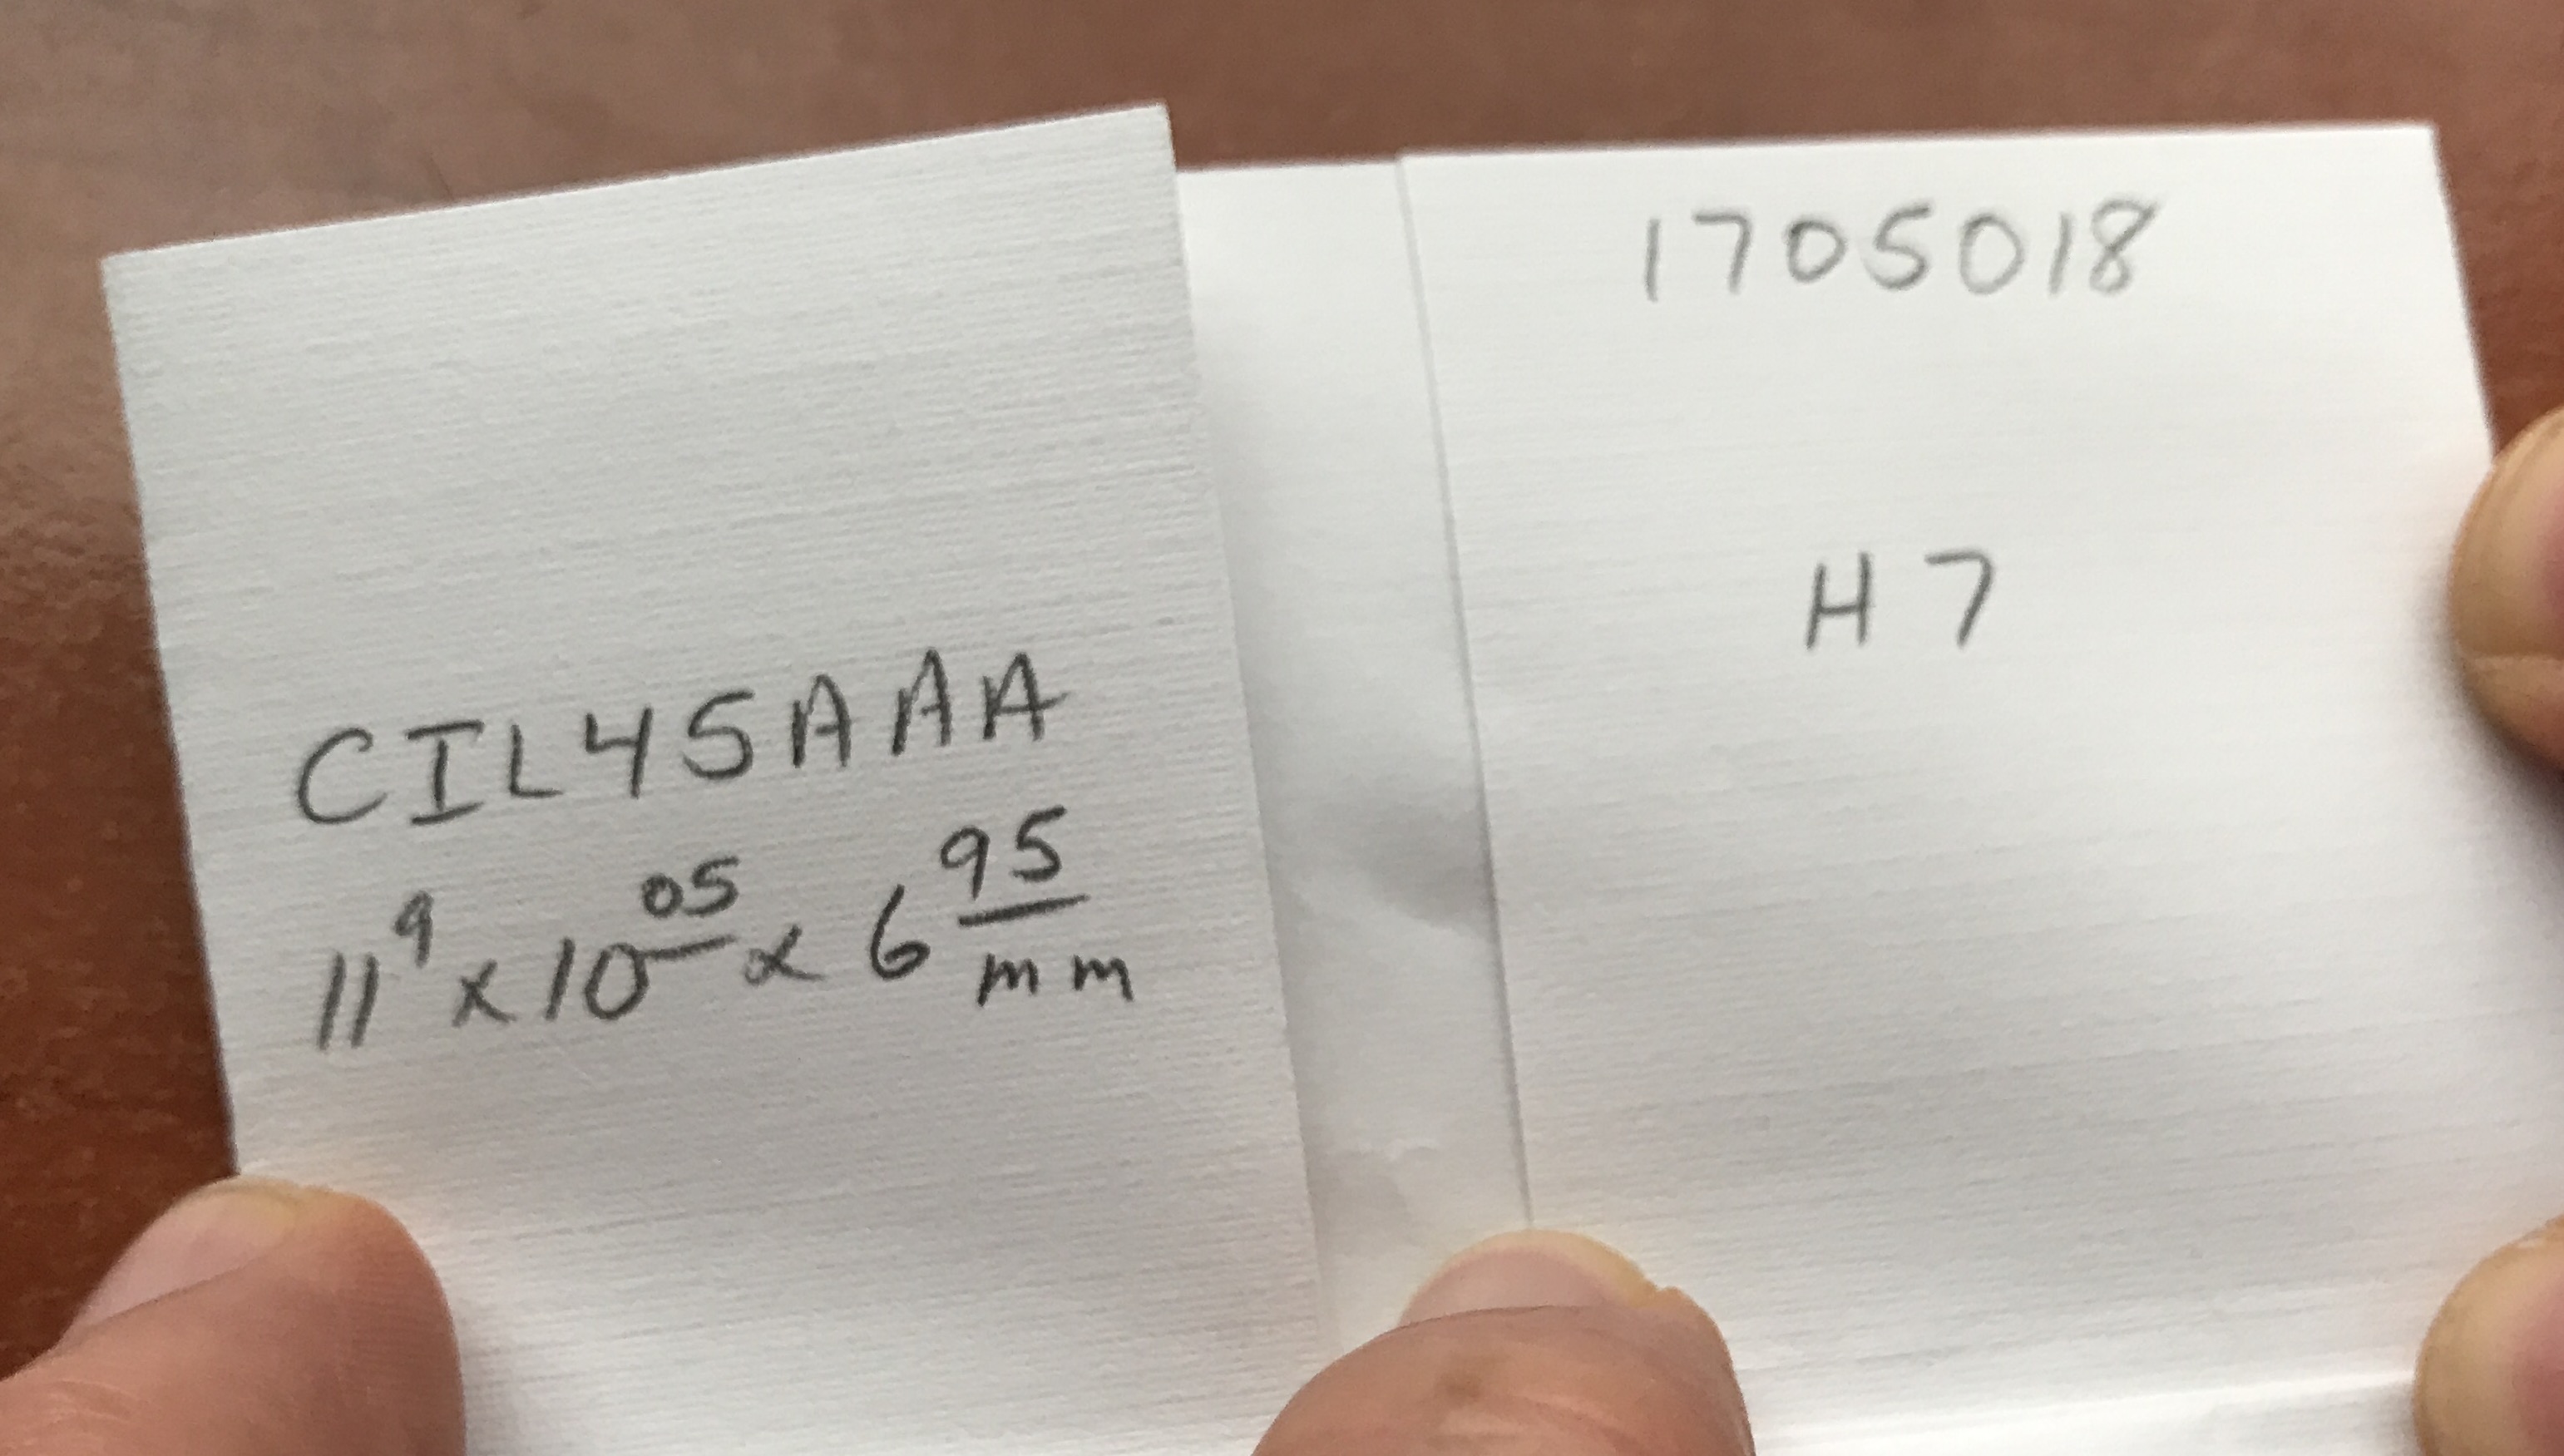 CIL45AAA
11⁹ x 10⁰⁵ x 6⁹⁵ mm
1705018
H7